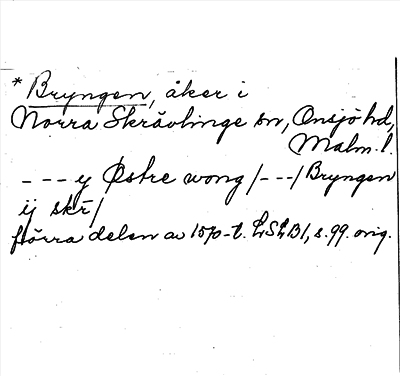 * Bryngen, åker i
Norra Skrävlinge sn, Onsjö hd,
Malm. l.
--- y Østre wong /---/ Bryngen
ij skr̄/
förra delen av 1570-t. LSLB1, s. 99. orig.